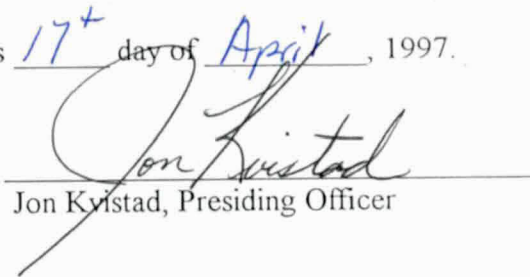 s 17th day of April, 1997.
Jon Kvistad
Jon Kvistad, Presiding Officer